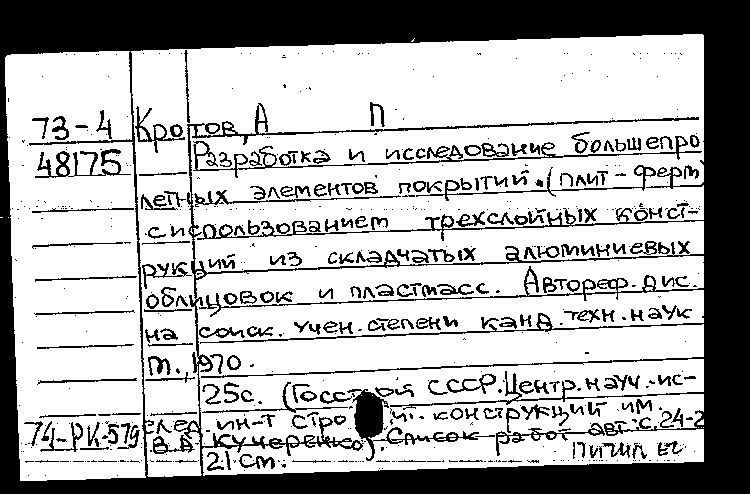 73-4 Кротов, А П
48175 Разработка и исследование большепро
летных элементов покрытий. (плит-ферм)
с использованием трехслойных конст-
рукций из складчатых алюминиевых
облицовок и пластмасс. Автореф. дис.
на соиск. учен. степени канд. техн. наук.
М., 1970.
25с. (Госстрой СССР. Центр. науч.-ис-
след. ин-т строит. конструкций им.
74-РК-579 В.А Кучеренко). Список работ авт: с. 24-2
21 см.